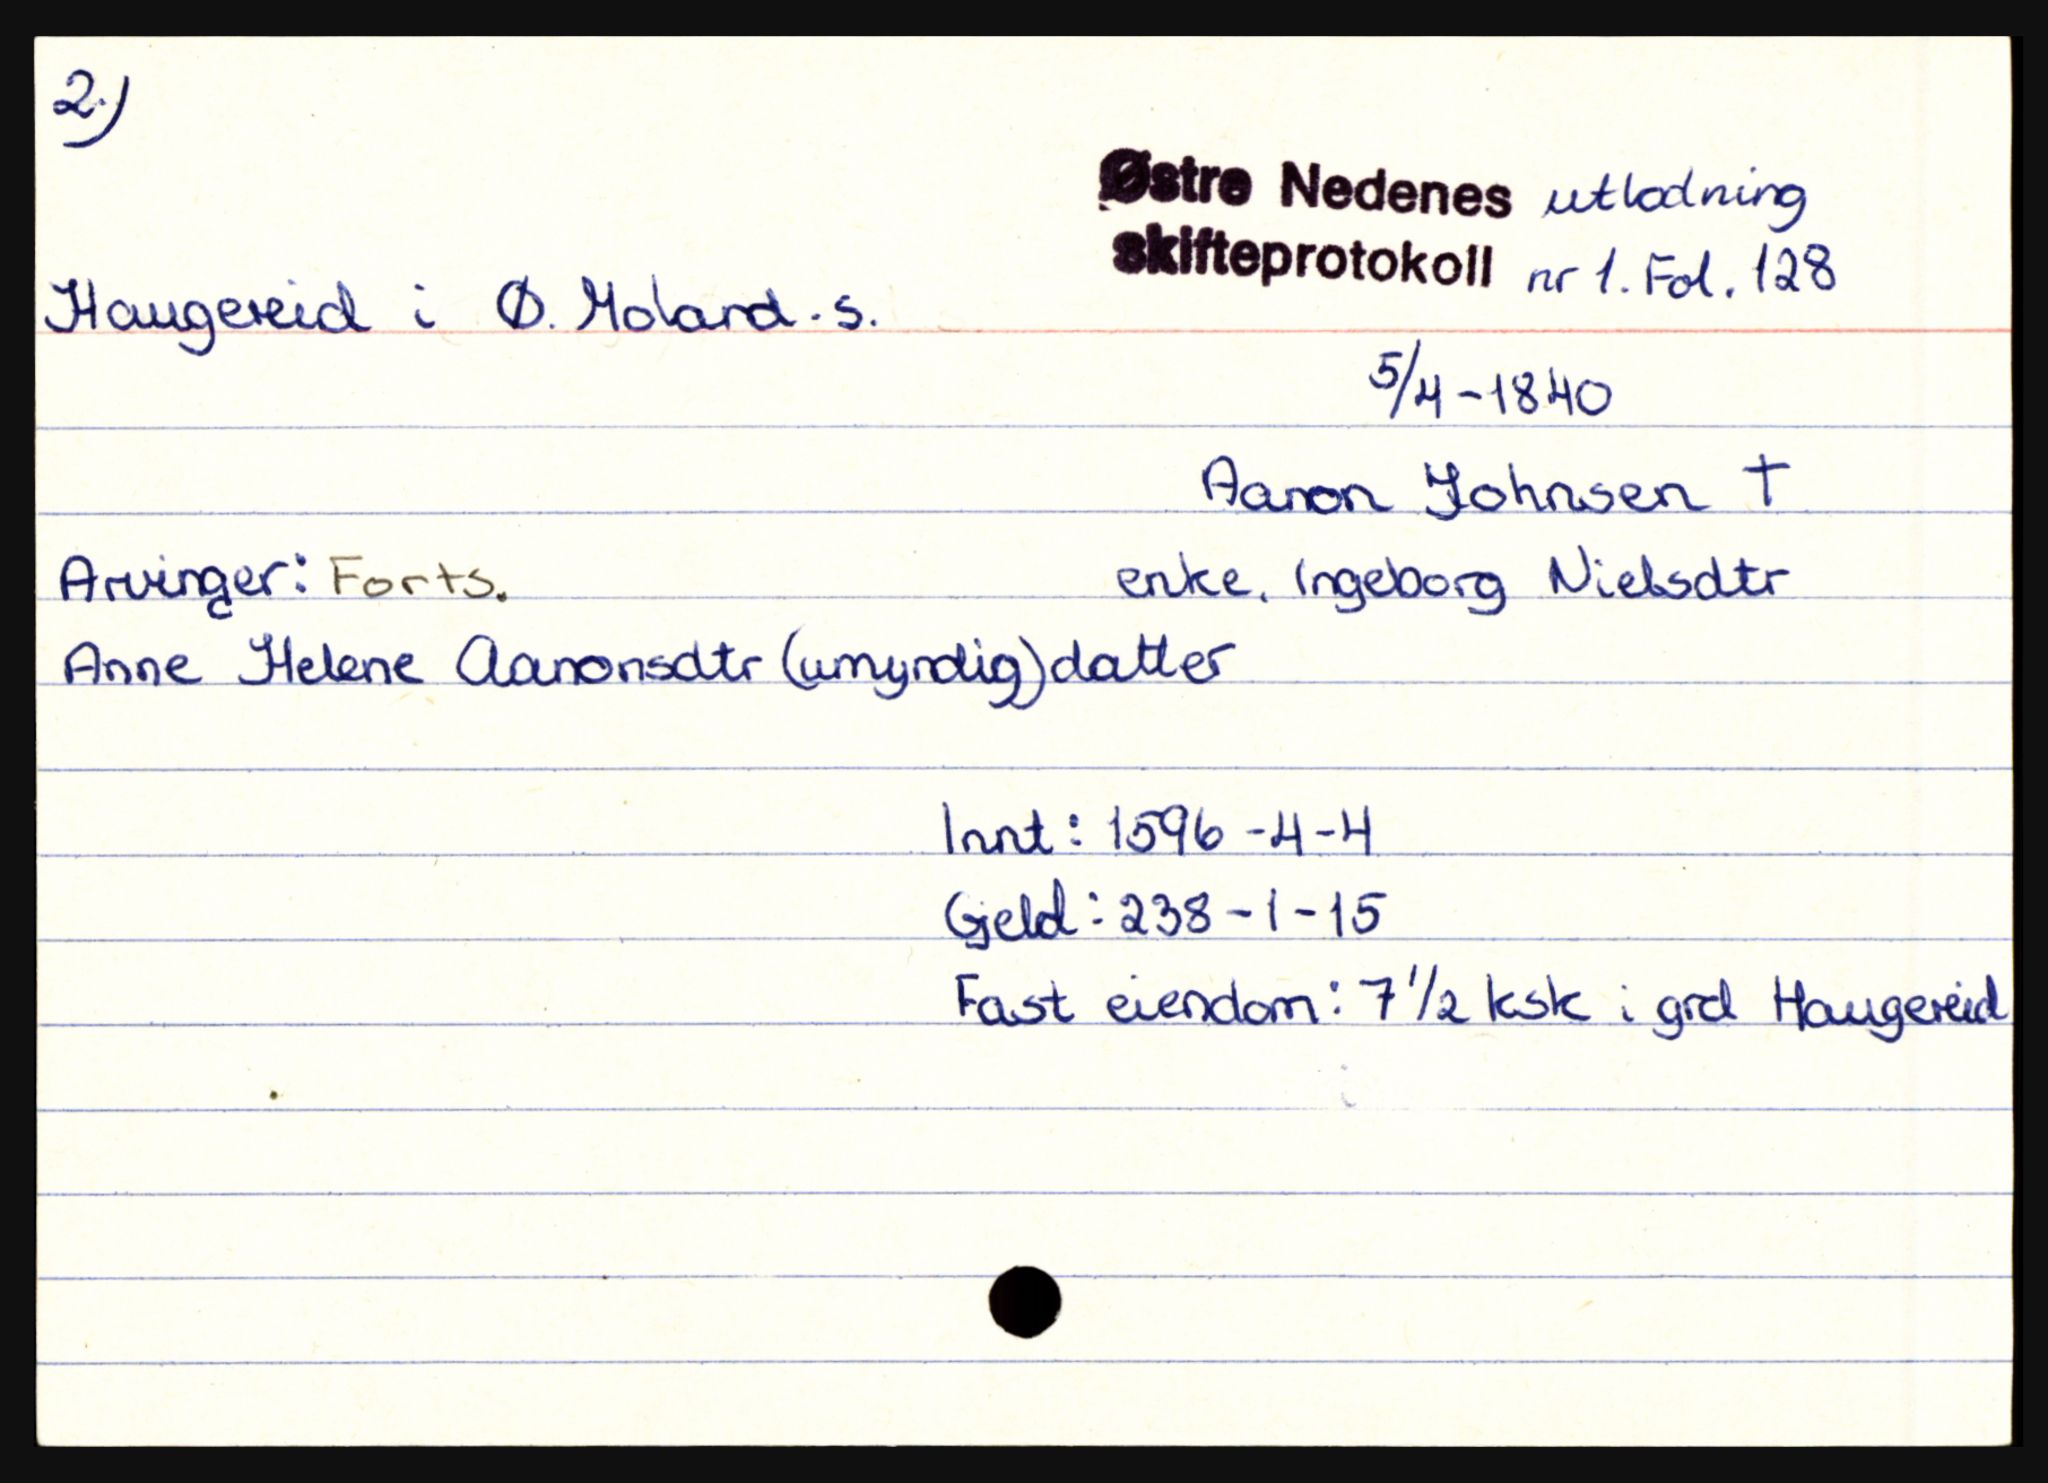 2.)
Østre Nedenes utlodning
skifteprotokoll nr 1. Fol. 128
Haugereid i Ø. Moland.s.
5/4-1840
Aaron Johnsen †
Arvinger: Forts. enke, Ingeborg Nielsdtr
Anne Helene Aaronsdtr (umyndig) datter
Innt: 1596-4-4
Gjeld: 238-1-15
Fast eiendom: 7 1/2 ksk i grd Haugereid